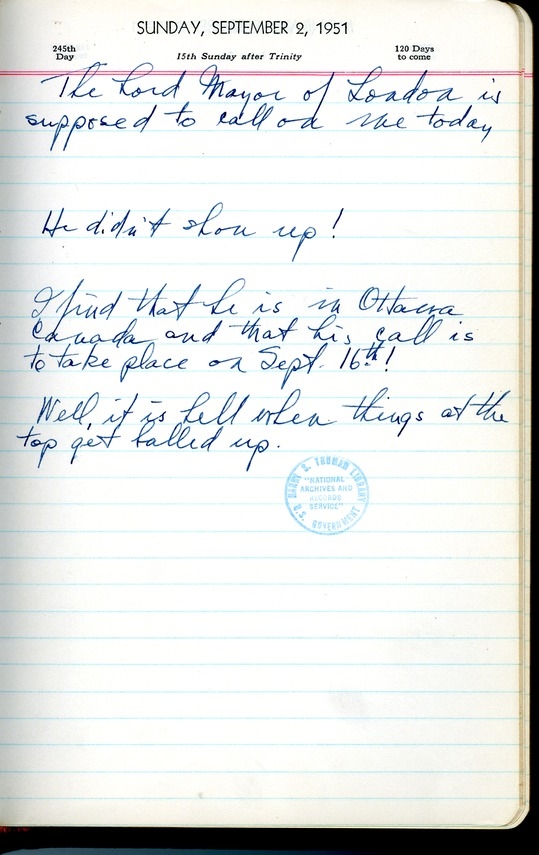 SUNDAY, SEPTEMBER 2, 1951
245th
Day
15th Sunday after Trinity
120 Days
to come
The Lord Mayor of London is
supposed to call on me today
He didn't show up!
I find that he is in Ottawa
Canada and that his call is
to take place on Sept. 16th!
Well, it is hell when things at the
top get balled up.
HARRY S. TRUMAN LIBRARY
"NATIONAL
ARCHIVES AND
RECORDS
SERVICE"
U.S. GOVERNMENT